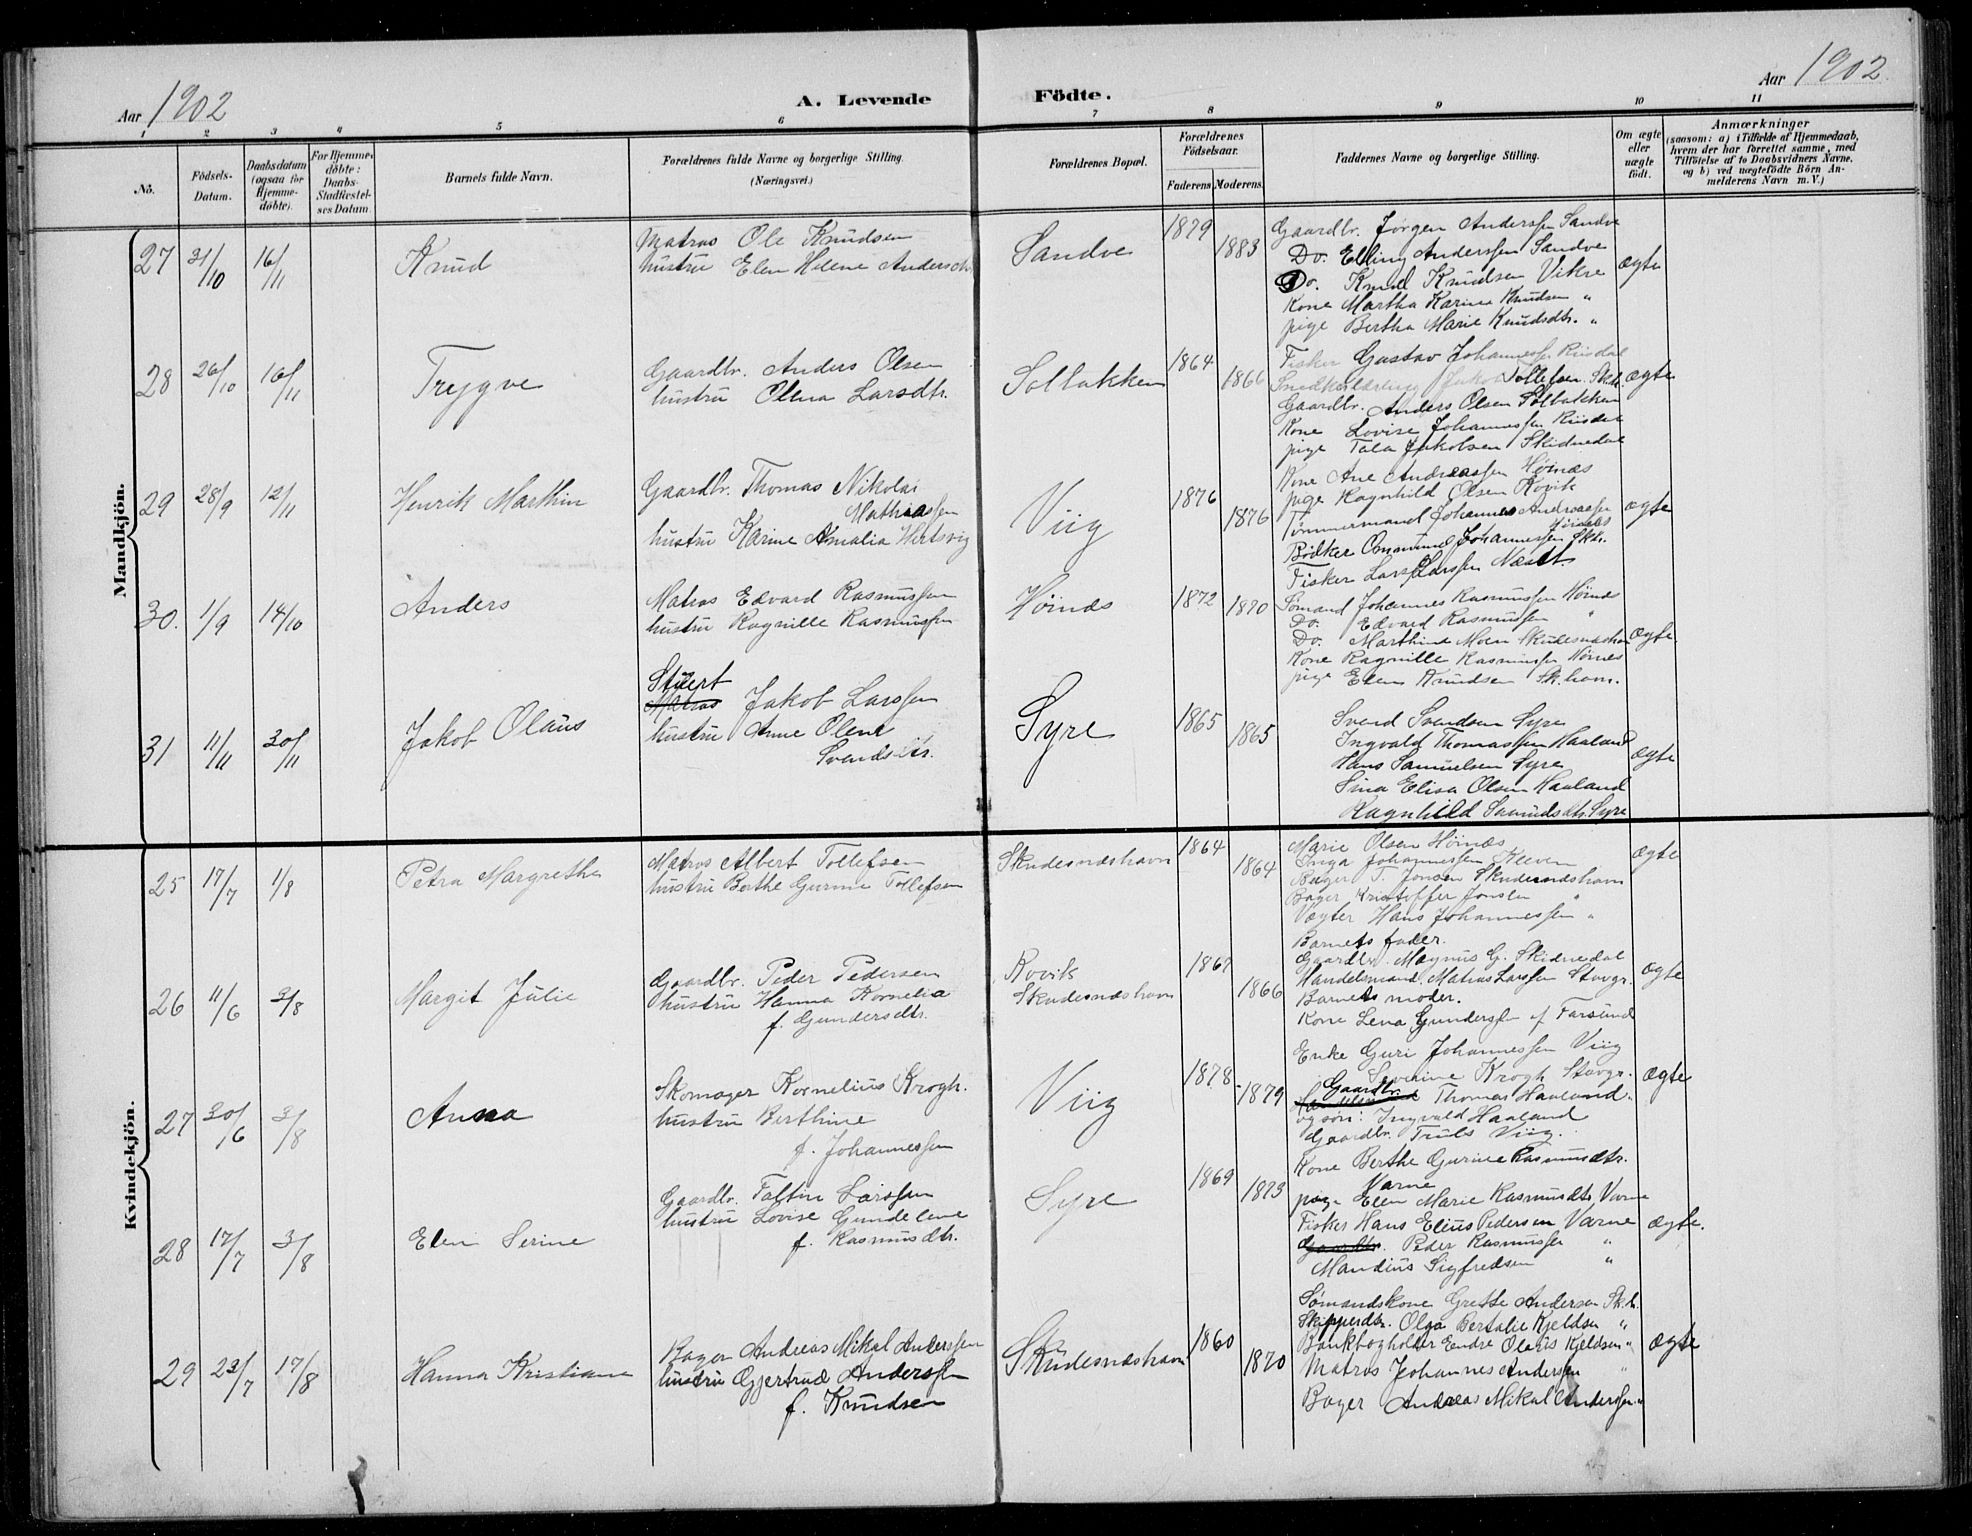 Aar 1902
A. Levende Födte.
Aar 1902
1 2 3 4 5 6 7 8 9 10 11
No.
Födsels-Datum.
Daabsdatum (ogsaa for Hjemmedöbte).
For Hjemmedöbte: Daabs-Stadfæstelses Datum
Barnets fulde Navn.
Forældrenes fulde Navne og borgerlige Stilling. (Næringsvei.)
Forældrenes Bopæl.
Forældrenes Födselsaar.
Faderens Moderens
Faddernes Navne og borgerlige Stilling.
Om ægte eller uægte födt.
Anmærkninger
(saasom: a) i Tilfælde af Hjemmedaab, hvem der har forrettet samme, med Tilföielse af to Daabsvidners Navne, og b) ved uægtefödte Börn Anmelderens Navn m. V.)
Mandkjön.
27 31/10 16/11 Knud
Matros Ole Knudsen
hustru Elen Helene Andersdtr
Sandve 1879 1883
Gaardbr. Jørgen Anderssen Sandve
Do. Elling Anderssen Sandve
Do. Knud Knudsen Vikre
Kone Martha Karina Knudsen "
pige Bertha Marie Knudsdtr. "
ægte
28 26/10 16/11 Trygve
Gaardbr. Anders Olsen
hustru Olena Larsdtr.
Solbakken 1864 1866
Fisker Gustav Johannessen Risdal
Snedkerlærling Jakob Tollefsen Skh.
Gaardbr. Anders Olsen Solbakken
Kone Lovise Johannessen Risdal
pige Tala Jakobsen Skidnedal
ægte
29 28/9 12/11 Henrik Marthin
Gaardbr. Thomas Nikolai
Mathiassen
hustru Karine Amalia Hertsvig
Viig 1876 1876
Kone Ane Andreassen Höinæs
pige Ragnhild Olsen Rovik
Tømmermand Johannes Andreassen
Höinæs
Bödker Ommund Johannessen Skh.
Fisker Lars Larssen Næset
ægte
30. 1/9 14/10 Anders
Matros Edvard Rasmussen
hustru Ragnille Rasmussen
Höinæs 1872 1870
Sømand Johannes Rasmussen Höinæs
Do. Edvard Rasmussen "
Do. Marthine Moen Skudesnæshavn
Kone Ragnille Rasmussen Hörnes
pige Elen Knudsen Sk.havn.
ægte
31 11/11 30/11 Jakob Olaus
Stuert
Matros Jakob Larssen
hustru Anne Olene
Svendsdtr.
Syre 1865 1865
Svend Svendsen Syre
Ingvald Thomassen Haaland
Hans Samuelsen Syre
Sina Elisa Olsen Haaland
Ragnhild Samuelsdtr. Syre
ægte
Kvindekjön.
25 17/7 1/8 Petra Margrethe
Matros Albert Tollefsen
hustru Berthe Gurine Tollefsen
Skudesnæshavn 1864 1864
Marie Olsen Hörnæs
Inga Johannessen Kleven
Bager T. Jonsen Skudesnæshavn
Bager Kristoffer Jonsen "
Vægter Hans Johannessen "
ægte
26 11/6 3/8 Margit Julie
Gaardbr. Peder Pedersen
hustru Hanna Kornelia
f. Gundersdtr.
Rovik
Skudesnæshavn
1867 1866
Barnets fader.
Gaardbr. Magnus G. Skidnedal
Handelsmand. Matias Larssen Stavgr.
Barnets moder.
Kone Lena Gunderssen af Farsund
ægte
27 30/6 3/8 Anna
Skomager Kornelius Krogh.
hustru Berthine
f. Johannessen
Viig 1878 1879
Enke Guri Johannessen Viig
Severine Krogh Stavgr.
Gaardbr. Thomas Haaland.
og søn: Ingvald Haaland
Gaardbr. Truls Viig.
ægte
28 17/7 3/8 Elen Serine
Gaardbr. Faltin Larssen
hustru Lovise Gundelene
f. Rasmusdtr.
Syre 1869 1873
Kone Berthe Gurine Rasmusdtr.
Varne
pige Elen Marie Rasmusdtr. Varne
Fisker Hans Elius Pedersen Varne
Gaardbr. Peder Rasmussen "
Mandius Sigfredsen "
ægte.
29 22/7 17/8 Hanna Kristiane
Bager Andreas Mikal Anderssen
hustru Gjertrud Anderssen
f. Knudsen
Skudesnæshavn 1860 1870
Sømandskone Grethe Andersen Sk.h.
Skipperdtr. Olga Bertalie Kjeldsen "
Bankbogholder Endre Oleus Kjeldsen "
Matros Johannes Andersen "
Bager Andreas Mikal Anderssen "
ægte